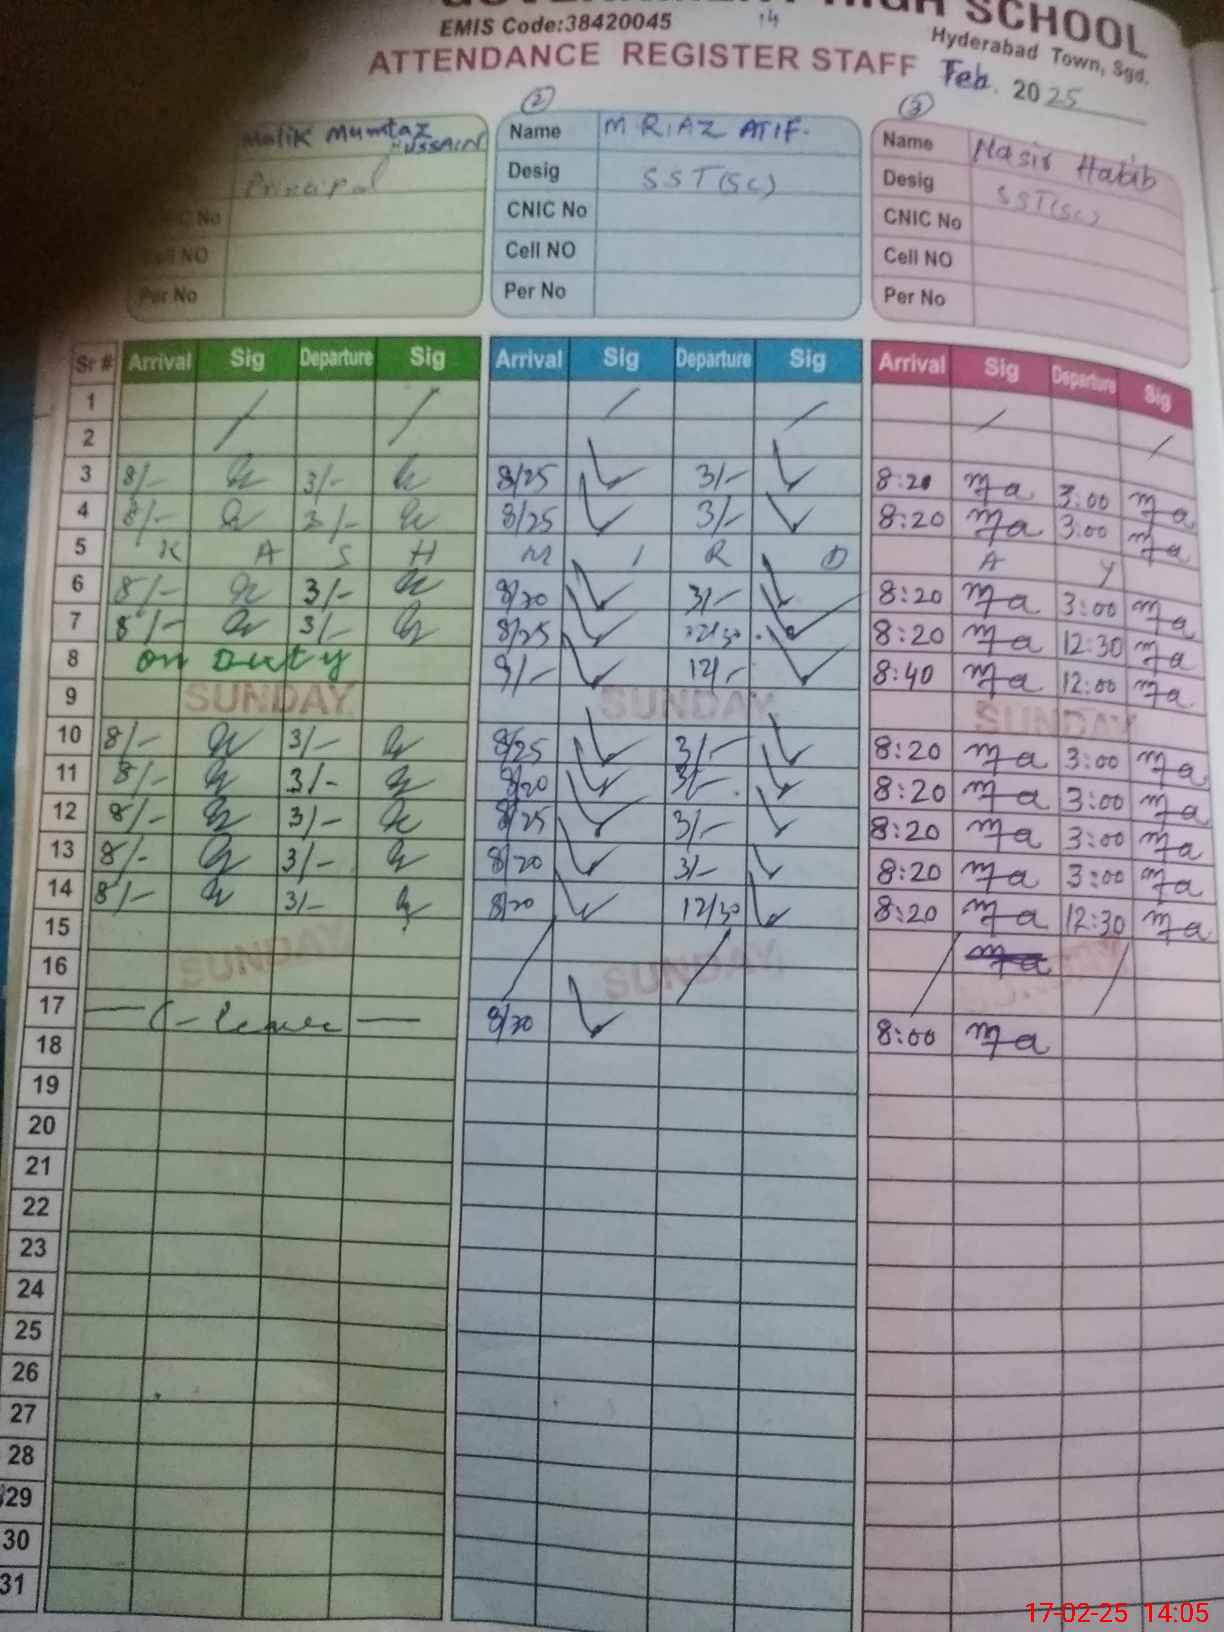 GOVERNMENT HIGH SCHOOL
EMIS Code:38420045
Hyderabad Town, Sgd.
ATTENDANCE REGISTER STAFF Feb. 2025
Malik Mumtaz HUSSAIN
Principal
CNIC No
Cell NO
Per No
2
Name M RIAZ ATIF.
Desig SST(SC)
CNIC No
Cell NO
Per No
3
Name Nasir Habib
Desig SST(SC)
CNIC No
Cell NO
Per No
Sr # Arrival Sig Departure Sig Arrival Sig Departure Sig Arrival Sig Departure Sig
1
2
3 8/- 3/- 8/25 3/- 8:20 3:00
4 8/- 3/- 8/25 3/- 8:20 3:00
5 K A S H M I R D A Y
6 8/- 3/- 8/20 3/- 8:20 3:00
7 8/- 3/- 8/25 12/30 8:20 12:30
8 on Duty 9/- 12/- 8:40 12:00
9 SUNDAY SUNDAY SUNDAY
10 8/- 3/- 8/25 3/- 8:20 3:00
11 8/- 3/- 8/20 3/- 8:20 3:00
12 8/- 3/- 8/25 3/- 8:20 3:00
13 8/- 3/- 8/20 3/- 8:20 3:00
14 8/- 3/- 8/20 12/30 8:20 12:30
15
16 SUNDAY SUNDAY
17 C-leave 8/20 8:00
18
19
20
21
22
23
24
25
26
27
28
29
30
31
17-02-25 14:05